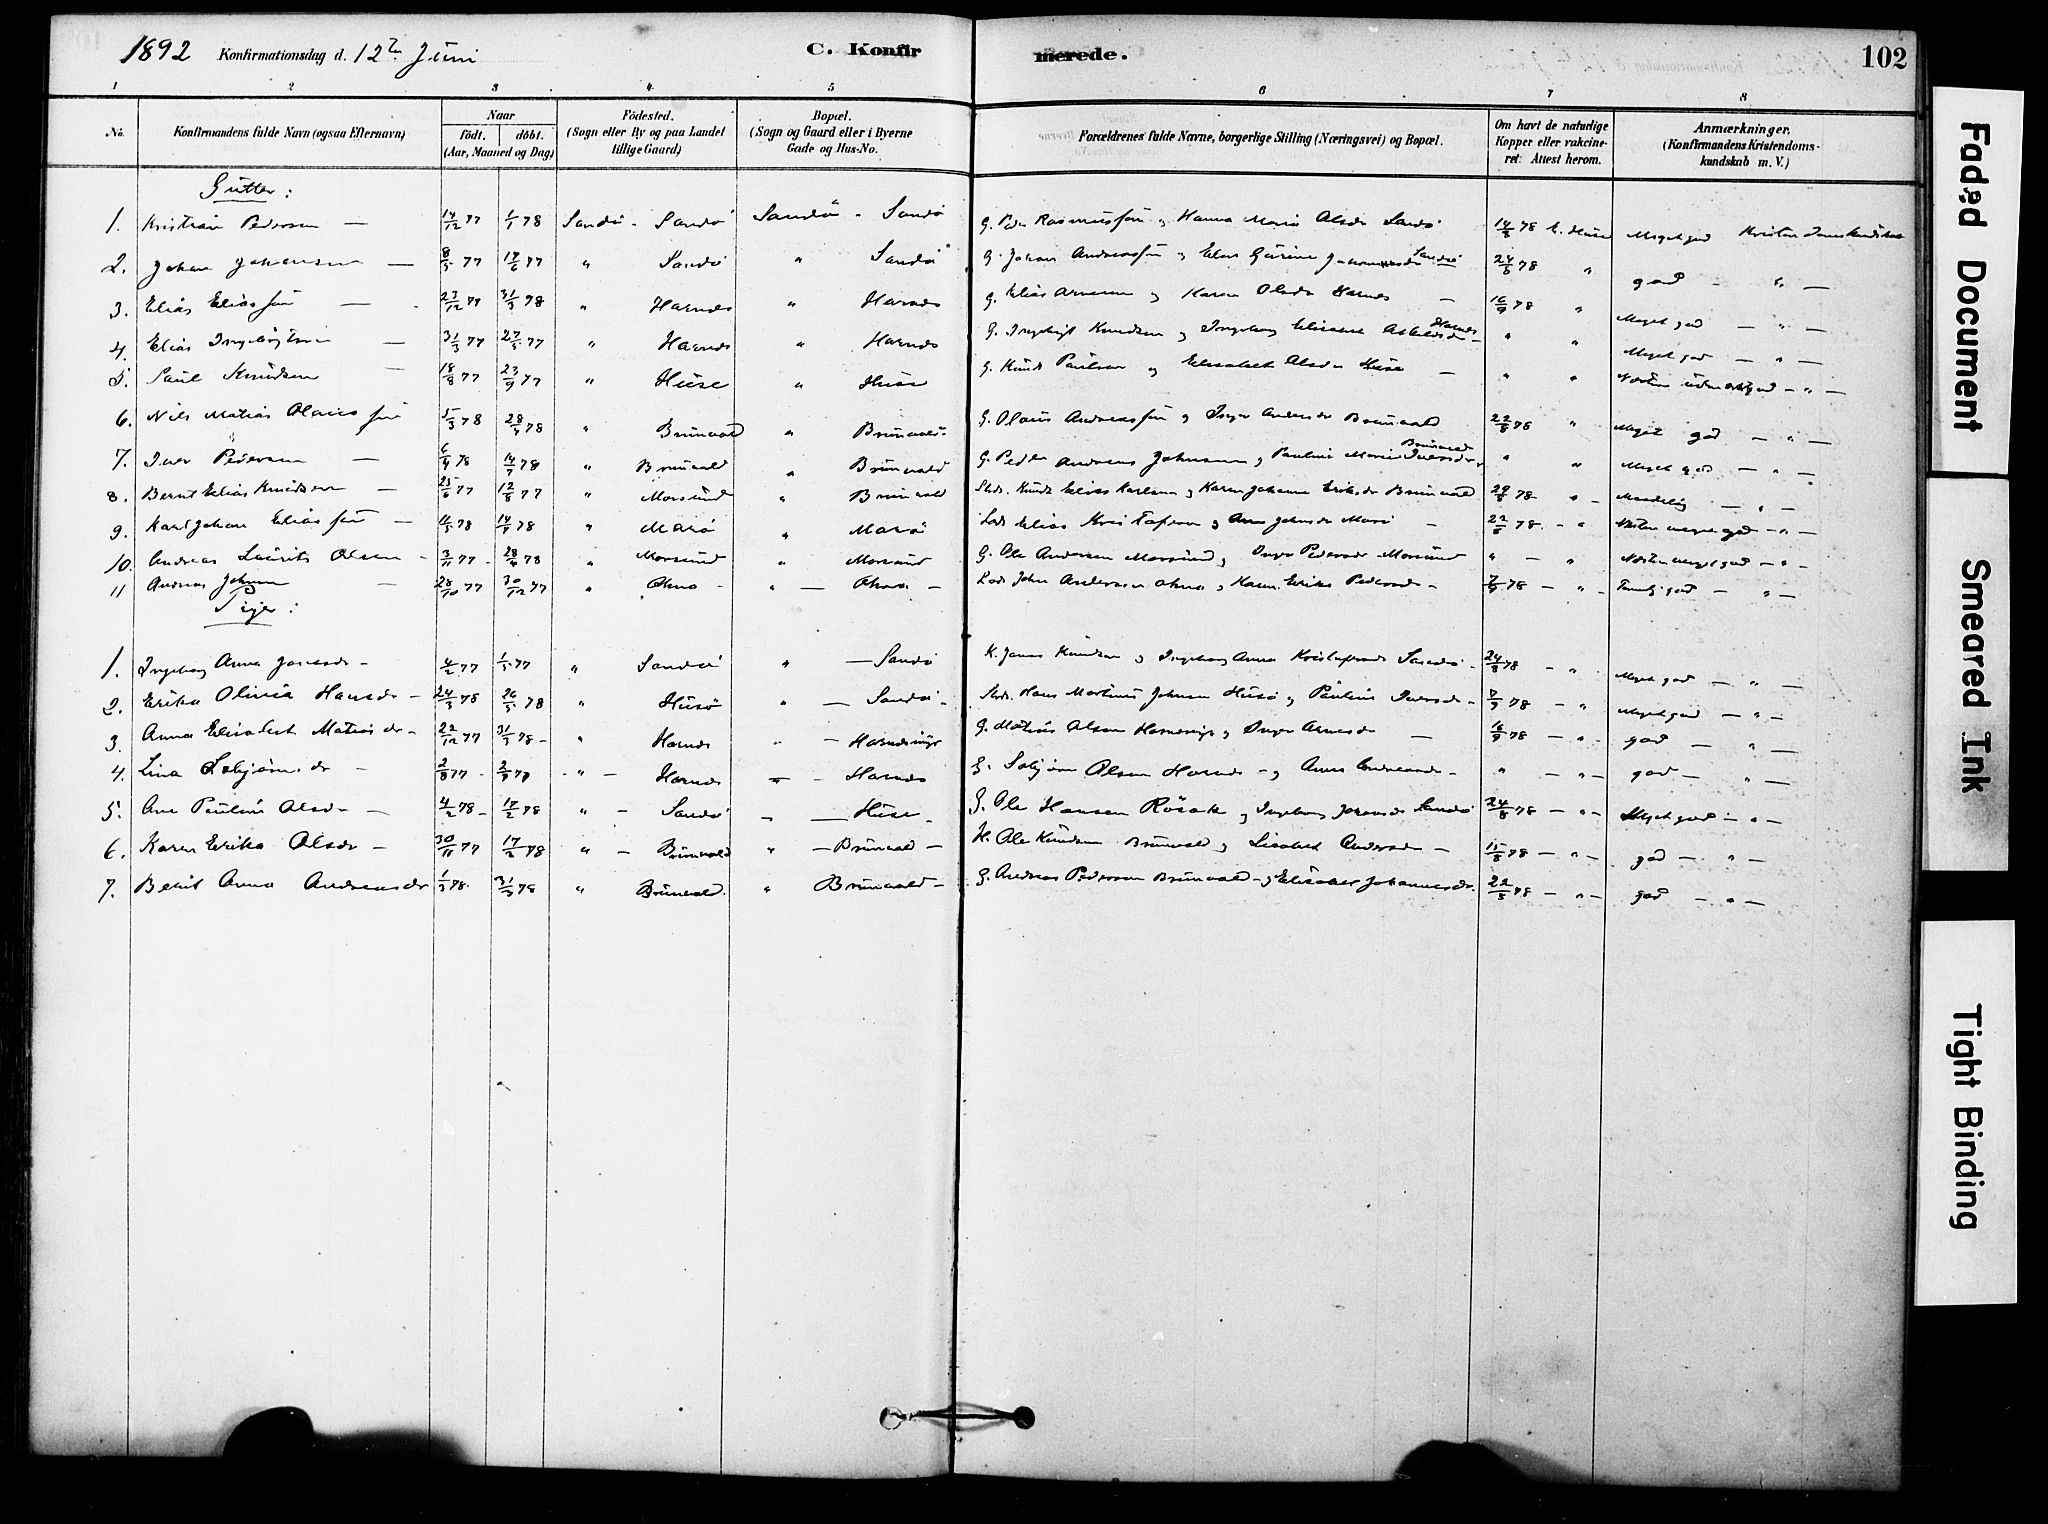 1892 Konfirmationsdag d. 12te Juni C. Konfirmerede. 102
1 2 3 4 5 6 7 8
No. Konfirmandens fulde Navn (ogsaa Efternavn) Naar født. døbt. (Aar, Maaned og Dag) Fødested. (Sogn eller By og paa Landet tillige Gaard) Bopæl. (Sogn og Gaard eller i Byerne Gade og Hus-No. Forældrenes fulde Navne, borgerlige Stilling (Næringsvei) og Bopæl. Om havt de naturlige Kopper eller vakcineret: Attest herom. Anmærkninger. (Konfirmandens Kristendomskundskab m. V.)
Gutter:
1. Kristian Pedersen — 14/12 77 1/1 78 Sandø - Sandø Sandø - Sandø G. Peder Rasmussøn og Hanna Maria Olsdr Sandø 78 E. Huse Meget god Kristendomskundskab
2. Johan Johansen — 8/5 77 17/6 77 " Sandø " Sandø G. Johan Andreassøn og Elen Gurine Sandø 24/5 78 " god - " —
3. Elias Eliassøn — 23/12 77 31/3 78 " Harnes " Harnes G. Elias Arnesen og Karen Olsdr Harnes — 16/9 78 " Meget god — " —
4. Elias Ingebrigtsen — 31/3 77 27/5 77 " Harnes " Harnes G. Ingebrigt Knudsen og Ingeborg Elisabet Harnes " " Meget god — " —
5. Paul Knudsen — 18/8 77 23/9 77 " Huse " Huse G. Knud Paulsen og Elisabet Olsdr Huse — " " Næsten udmærket god — " —
6. Nils Matias Olaussøn 5/3 78 28/4 78 " Brunvold " Brunvold G. Olaus Andreassøn og Inger Andersdr Brunvold 22/8 78 " Meget god — " —
7. Iver Pedersen — 6/4 78 14/7 78 " Brunvold " Brunvold G. Peder Andreas Johnsen og Pauline Marie Iversdr Brunvold " " Meget god — " —
8. Bernt Elias Knudsen — 25/6 77 12/8 77 " Morsund " Brunvold Knud Elias Karlsen og Karen Johanna Eriksdr Brunvold 78 " Maadelig — " —
9. Karl Johan Eliassøn — 78 78 " Marø " Marø Elias Kristofersen og Ane Johnsdr Marø — 22/8 78 - " Næsten meget god — " —
10. Andreas Laurits Olsen - 3/11 77 28/4 78 " Morsund " Morsund G. Ole Andersen Morsund og Inger Pedersdr Morsund " — " Næsten meget god — " —
11 Andreas Johnsen — 28/10 77 30/12 77 " Ohna - " — Ohna — John Andersen Ohna og Karen Erika Pedersdr — 78 — " — Temlig god — " —
Piger:
1. Ingeborg Anna Jonasdr - 4/2 77 1/5 77 " Sandø " — Sandø K. Jonas Knudsen og Ingeborg Anna Kristofersdr Sandø - 24/8 78 - " Meget god — " —
2. Erika Olivia Hansdr - 24/3 78 26/5 78 " Husø " — Sandø - Hans Martinus Johnsen Husø og Pauline Iversdr - 78 - " Meget god — " —
3. Anna Elisabet Matiasdr - 22/12 77 31/3 78 - " Harnes " — G. Matias Olsen og Inger Arnesdr — 16/9 78 - " - god — " —
4. Lina Solbjørnsdr - 2/8 77 - 2/9 77 - " — Harnes — - Harnes G. Solbjørn Olsen Harnes - og Anne Andreasdr - " — " — god — " —
5. Ane Pauline Olsdr — 4/2 78 - 17/2 78 " - Sandø - — Huse - G. Ole Hansen Røsok og Ingeborg Jonasdr Sandø 24/8 78 — " - Meget god — " —
6. Karen Erika Olsdr — 30/11 77 17/2 78 " - Brunvold " — Brunvold — H. Ole Knudsen Brunvold og Lisabet Andersdr — 15/8 78 — " — god — " —
7. Berit Anna Andreasdr 1/3 78 31/3 78 " Brunvold. " Brunvold - G. Andreas Pedersen Brunvold - og Elisabet Johannesdr. 78 — " — god — " —
Faded Document
Smeared Ink
Tight Binding